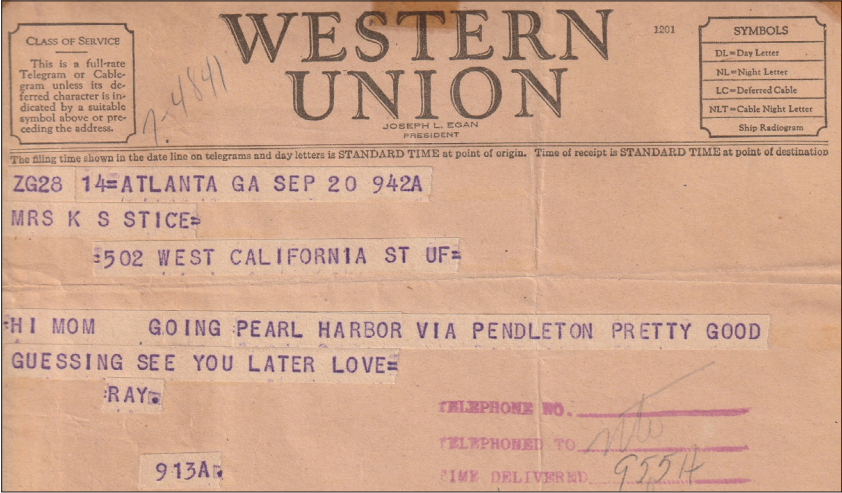 CLASS OF SERVICE
This is a full-rate
Telegram or Cable-
gram unless its de-
ferred character is in-
dicated by a suitable
symbol above or pre-
ceding the address.
7-4841
WESTERN
UNION
JOSEPH L. EGAN
PRESIDENT
1201
SYMBOLS
DL=Day Letter
NL=Night Letter
LC=Deferred Cable
NLT=Cable Night Letter
Ship Radiogram
The filing time shown in the date line on telegrams and day letters is STANDARD TIME at point of origin. Time of receipt is STANDARD TIME at point of destination
ZG28 14=ATLANTA GA SEP 20 942A
MRS K S STICE=
:502 WEST CALIFORNIA ST UF=
:HI MOM GOING PEARL HARBOR VIA PENDLETON PRETTY GOOD
GUESSING SEE YOU LATER LOVE=
:RAY.
913A.
TELEPHONE NO.
TELEPHONED TO
TIME DELIVERED